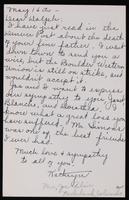 May 16th -
Dear Ralph:
I have just read in the
Denver Post about the death
of your fine father. I went
down town to send you a
wire, but the Boulder Western
Union is still on strike, and
wouldn't accept it.
Joe and I want to express
our sympathy to you,
Blanche, and
know what a great loss you
have suffered. Mr.
was one of the best friends
I ever had.
Much love & sympathy
to all of you!
Kathryn